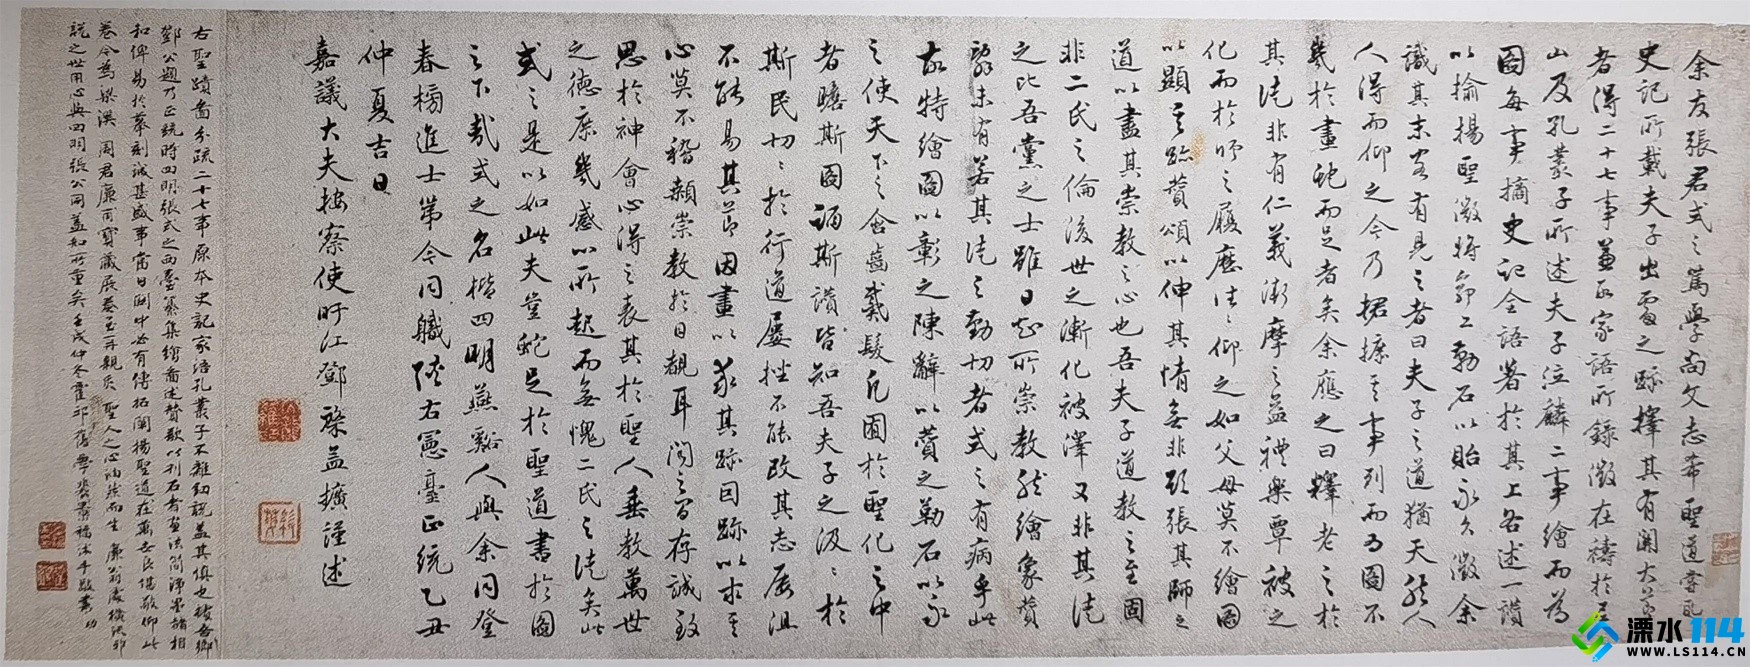 余友張君式之篤學尚文志希聖道嘗取
史記所載夫子出處之跡擇其有關大節
者得二十七事兼取家語所錄徵在禱於尼
山及孔叢子所述夫子泣麟二事繪而為
圖每事摘史記全語著於其上各述一讚
以揄揚聖徽將命工勒石以貽永久徵余
識其末客有見之者曰夫子之道猶天然人
人得而仰之今乃摭其事列而為圖不
幾於畫蛇而足者矣余應之曰釋老之於
其徒非有仁義漸摩之益禮樂覃被之
化而於師之履歷往往仰之如父母莫不繪圖
以顯其跡贊頌以伸其情無非張其師之
道以盡其崇教之心也吾夫子道教之至固
非二氏之倫後世之漸化被澤又非其徒
之比吾黨之士雖日知所崇教然繪象贊
辭未有若其徒之勤切者式之有病乎此
故特繪圖以彰之陳辭以贊之勒石以永
之使天下之含齒戴髮凡囿於聖化之中
者瞻斯圖誦斯讚皆知吾夫子之汲汲於
斯民切切於行道屢挫不能改其志厄沮
不能易其節因畫以求其跡因跡以求其
心莫不稽顙崇教於日覩耳聞之間存誠致
思於神會心得之表其於聖人垂教萬世
之德庶幾感以所起而無愧二氏之徒矣此
式之是以如此夫豈蛇足於聖道書於圖
之下哉式之名楷四明燕谿人與余同登
春榜進士第今同職陝右憲臺正統乙丑
仲夏吉日
嘉議大夫按察使盱江鄧棨孟擴謹述
右聖蹟圖分疏二十七事原本史記家語孔叢子不雜勦說蓋其慎也
鄧公題乃正統時四明張式之西臺纂集繪圖述贊歌以刊石者畫法簡淨署諸相
和俾易於摹刻誠甚盛事當日關中必有傳拓闡揚聖道在萬世良堪敬仰此
卷今為梁溪周君廉甫寶藏展卷至再親炙聖人之心油然而生廉翁
說之世用心與四明張公同蓋知所重矣壬戌仲冬霍邱裴景福沐手敬書
溧水114
WWW.LS114.CN